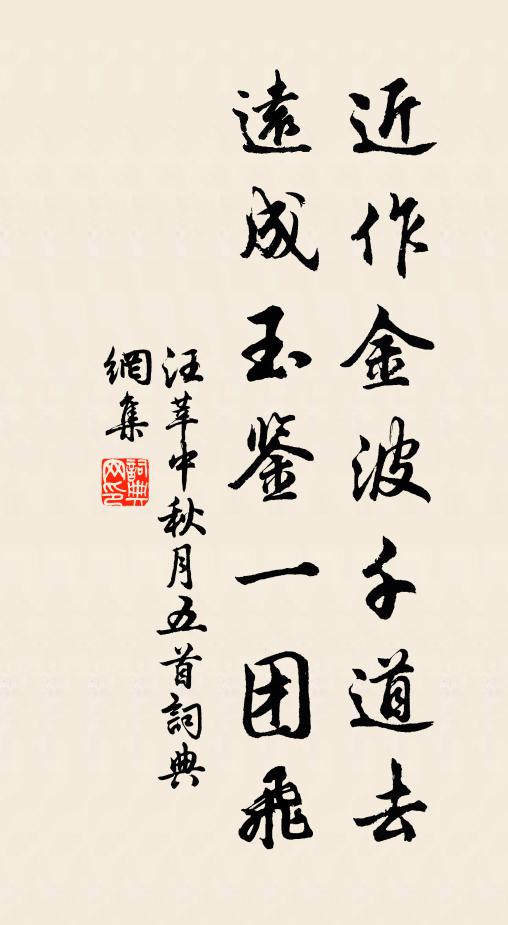 近作金波千道去
遠成玉鉴一团飛
汪莘中秋月五首詞典
網集
詞典网印